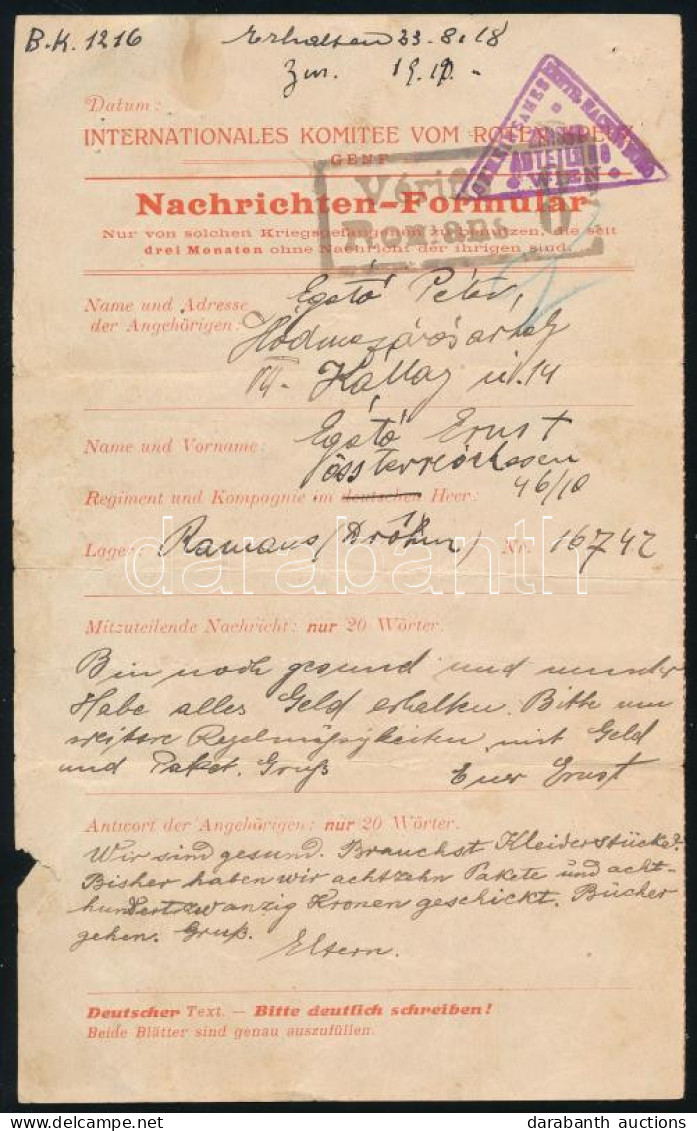 B.K. 1216
Erhalten 23.8.18
Zur. 19.
Datum:
INTERNATIONALES KOMITEE VOM ROTEN KREUZ
GENF
ABTEILUNG
WIEN
Nachrichten-Formular
Romans
Nur von solchen Kriegsgefangenen zu benutzen, die seit
drei Monaten ohne Nachricht der ihrigen sind.
Name und Adresse
der Angehörigen:
Egető Péter,
Hódmezővásárhely
VII. Kállay u. 14
Name und Vorname: Egető Ernst
Regiment und Kompagnie im deutschen Heer: 46/10
Lager: Romans (Drôme) Nr. 16742
darabanth
Mitzuteilende Nachricht: nur 20 Wörter.
Bin noch gesund und munter
Habe alles Geld erhalten. Bitte um
weitere Regelmäßigkeiten mit Geld
und Paket. Gruß Euer Ernst
Antwort der Angehörigen: nur 20 Wörter.
Wir sind gesund. Brauchst Kleiderstücke?
Bisher haben wir achtzehn Pakete und acht-
hundertzwanzig Kronen geschickt. Bücher
gehen. Gruß.
Eltern.
Deutscher Text. — Bitte deutlich schreiben!
Beide Blätter sind genau auszufüllen.
www.darabanth.com
darabanth auctions